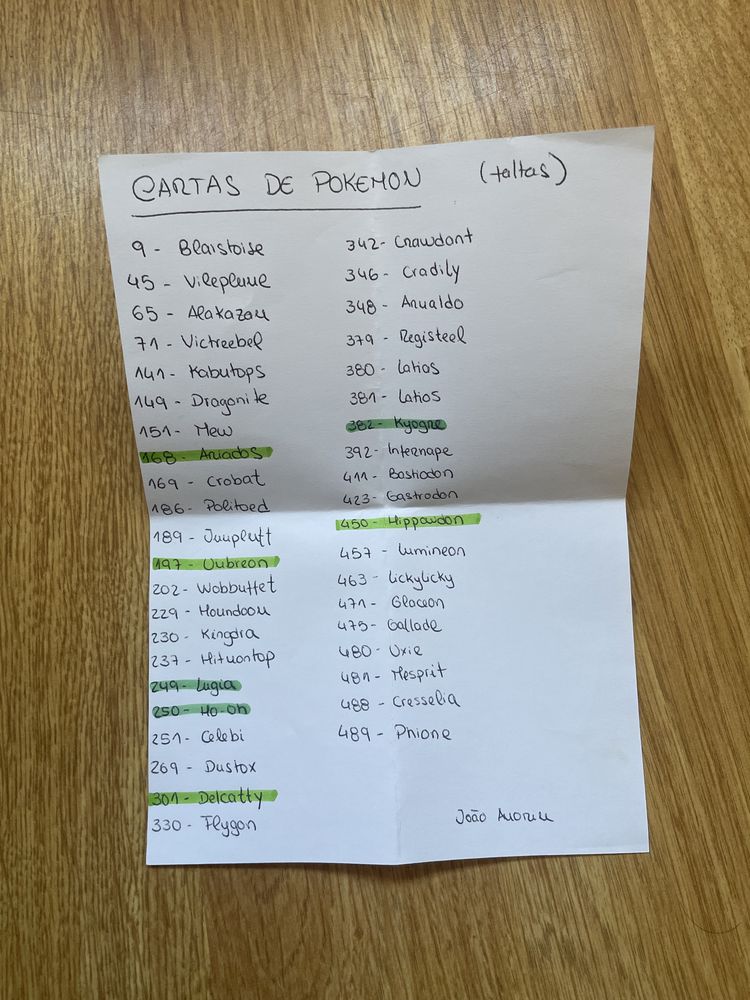 CARTAS DE POKEMON (faltas)
9 - Blaistoise
45 - Vileplume
65 - Alakazam
71 - Victreebel
141 - Kabutops
149 - Dragonite
151 - Mew
168 - Ariados
169 - Crobat
186 - Politoed
189 - Jumpluff
197 - Umbreon
202 - Wobbuffet
229 - Houndoom
230 - Kingdra
237 - Hitmontop
249 - Lugia
250 - Ho-oh
251 - Celebi
269 - Dustox
301 - Delcatty
330 - Flygon
342 - Crawdant
346 - Cradily
348 - Armaldo
379 - Registeel
380 - Latias
381 - Latios
382 - Kyogre
392 - Infernape
411 - Bastiodon
423 - Gastrodon
450 - Hippowdon
457 - Lumineon
463 - Lickylicky
471 - Glaceon
475 - Gallade
480 - Uxie
481 - Mesprit
488 - Cresselia
489 - Phione
João Amorim